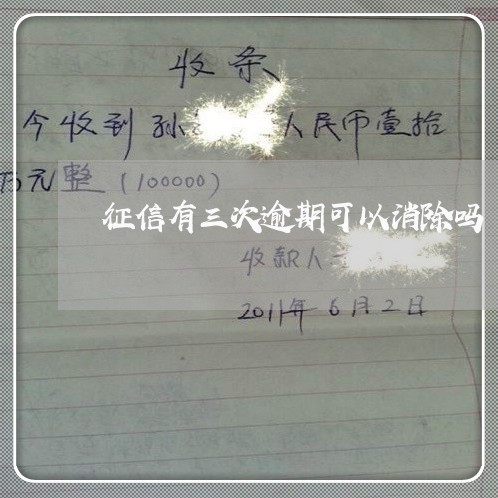 收条
今收到孙 人民币壹拾
万元整(100000)
征信有三次逾期可以消除吗
收款人
2011年6月2日